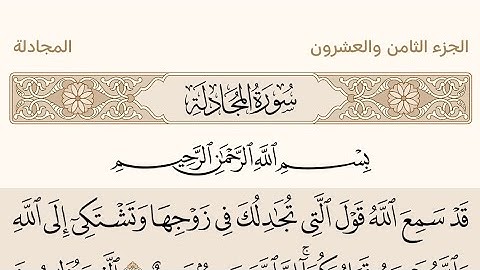 الجزء الثامن والعشرون
المجادلة
سُورَةُ المُجَادلَة
بِسْمِ اللَّهِ الرَّحْمَٰنِ الرَّحِيمِ
قَدْ سَمِعَ اللَّهُ قَوْلَ الَّتِي تُجَادِلُكَ فِي زَوْجِهَا وَتَشْتَكِي إِلَى اللَّهِ